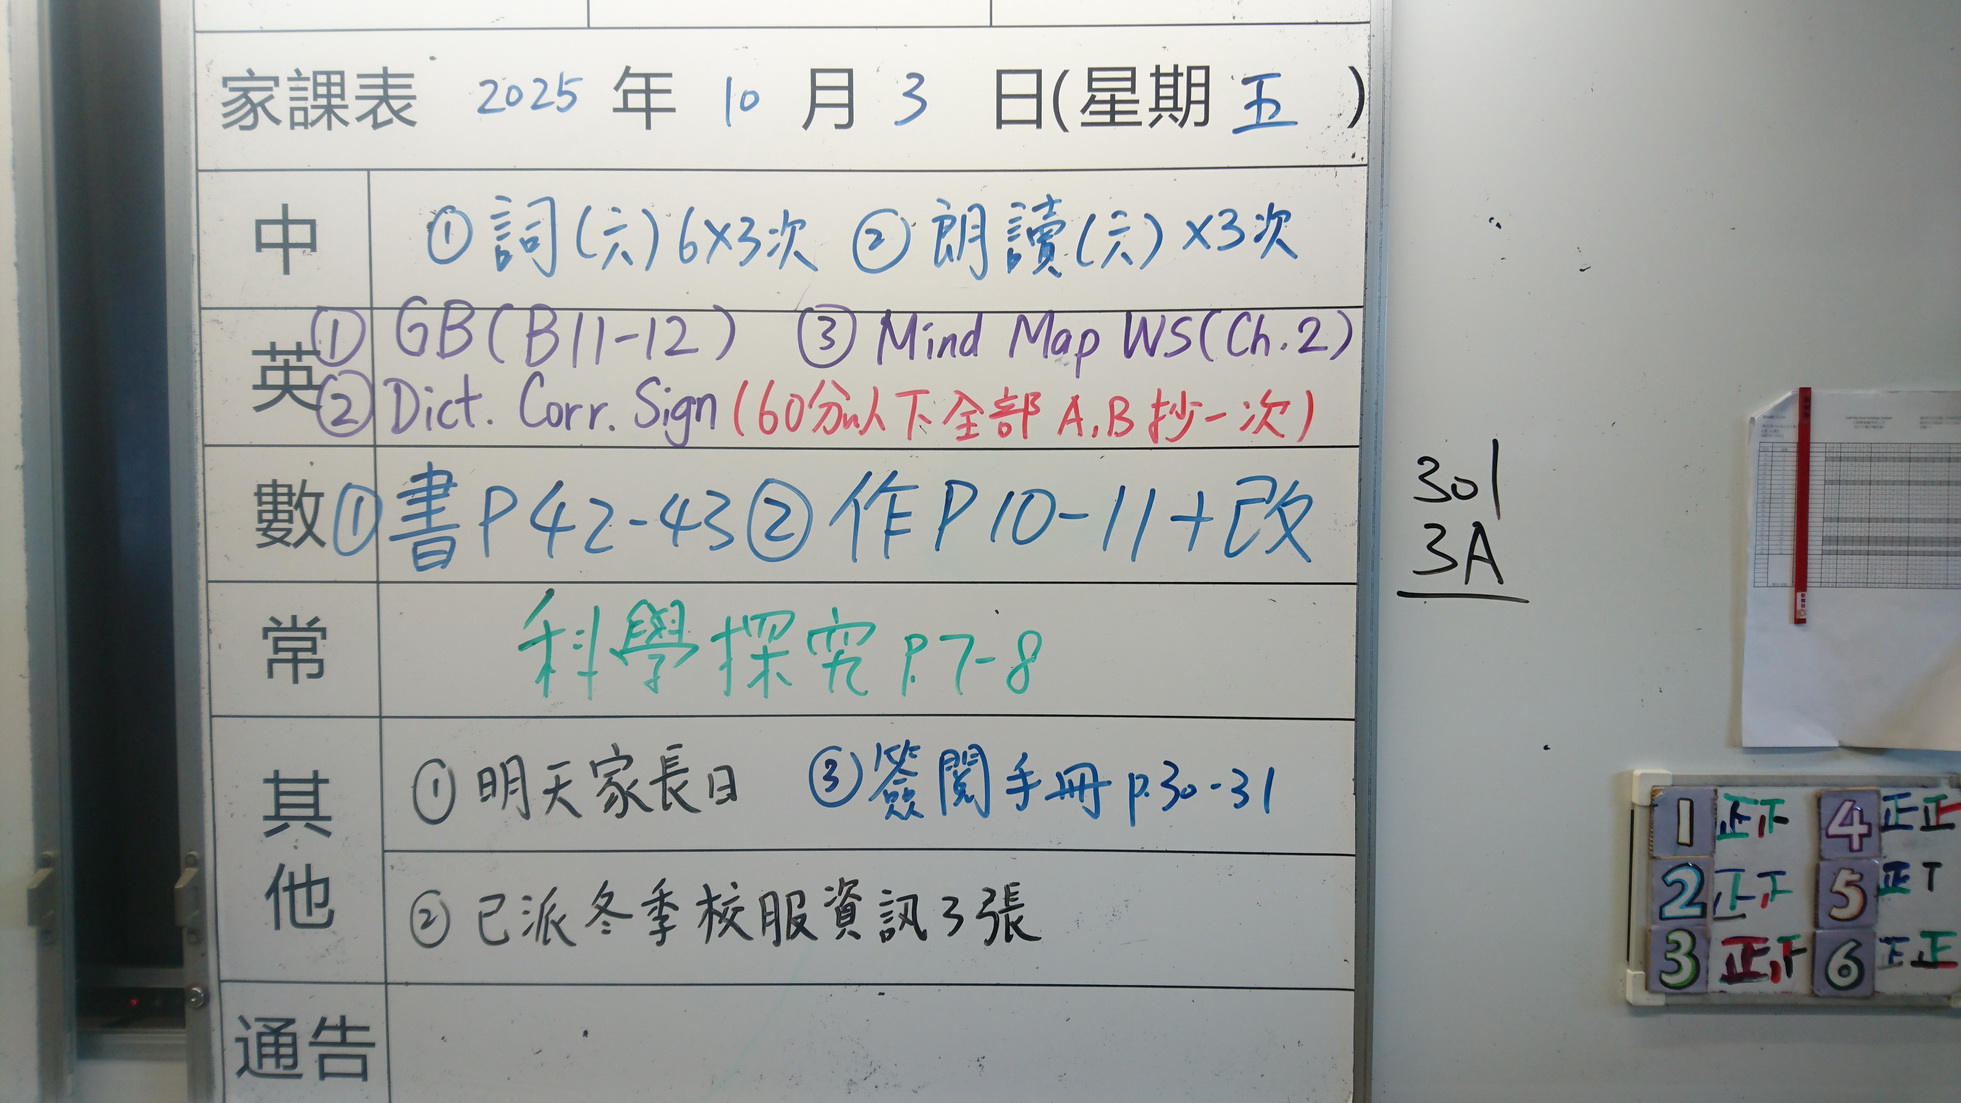 家課表 2025 年 10 月 3 日(星期 五 )
中 ① 詞(六)6×3次 ② 朗讀(六)×3次
英 ① GB(B11-12) ③ Mind Map WS(Ch.2)
② Dict. Corr. Sign (60分以下全部 A,B 抄一次)
數 ① 書P42-43 ② 作P10-11+改
常 科學探究 P.7-8
其他 ① 明天家長日 ③ 簽閱手冊 p.30-31
② 已派冬季校服資訊3張
通告
301
3A
1 正下 4 正正
2 正下 5 正丅
3 正下 6 下正